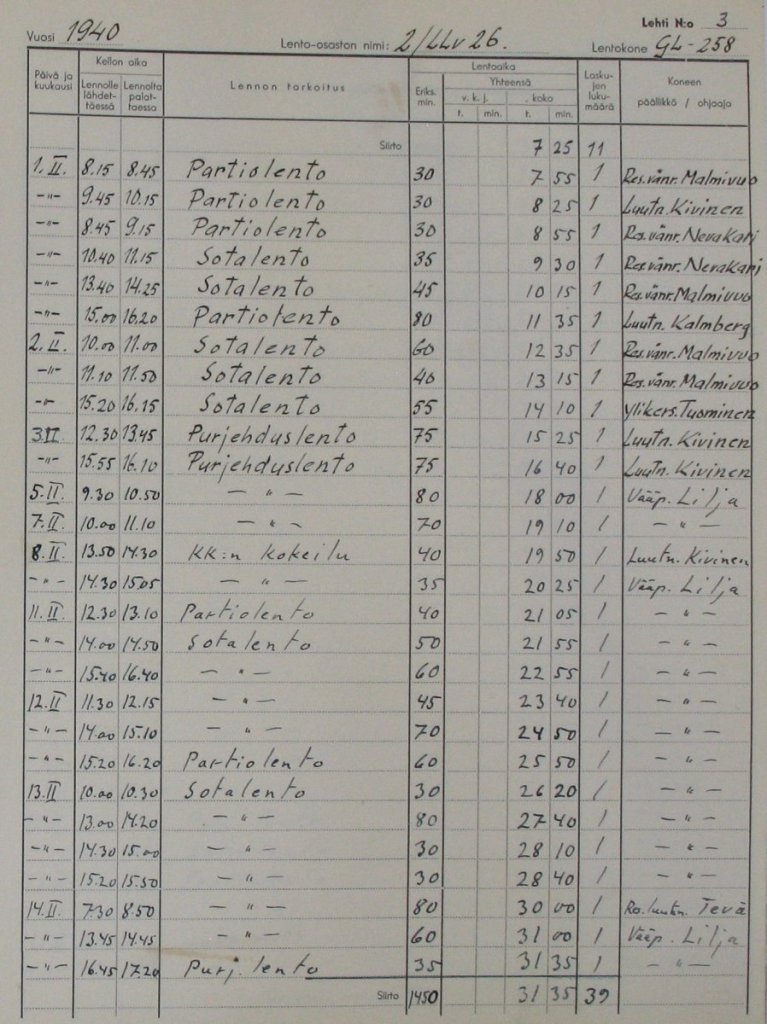 Vuosi 1940 Lento-osaston nimi: 2/LLv 26. Lehti N:o 3
Lentokone GL-258
Päivä ja kuukausi Kellon aika Lennolle lähdettäessä Lennolta palattaessa Lennon tarkoitus Lentoaika Eriks. min. Yhteensä v. k. j. t. min. koko t. min. Laskujen lukumäärä Koneen päällikkö / ohjaaja
Siirto 7 25 11
1.II. 8.15 8.45 Partiolento 30 7 55 1 Res.vänr. Malmivuo
-"- 9.45 10.15 Partiolento 30 8 25 1 Luutn. Kivinen
-"- 8.45 9.15 Partiolento 30 8 55 1 Res.vänr. Nevakari
-"- 10.40 11.15 Sotalento 35 9 30 1 Res.vänr. Nevakari
-"- 13.40 14.25 Sotalento 45 10 15 1 Res.vänr. Malmivuo
-"- 15.00 16.20 Partiolento 80 11 35 1 Luutn. Kalmberg
2.II. 10.00 11.00 Sotalento 60 12 35 1 Res.vänr. Malmivuo
-"- 11.10 11.50 Sotalento 40 13 15 1 Res.vänr. Malmivuo
-"- 15.20 16.15 Sotalento 55 14 10 1 Ylikers. Tuominen
3.II 12.30 13.45 Purjehduslento 75 15 25 1 Luutn. Kivinen
-"- 15.55 16.10 Purjehduslento 75 16 40 1 Luutn. Kivinen
5.II. 9.30 10.50 -"- 80 18 00 1 Vääp. Lilja
7.II. 10.00 11.10 -"- 70 19 10 1 -"-
8.II. 13.50 14.30 KK:n kokeilu 40 19 50 1 Luutn. Kivinen
-"- 14.30 15.05 -"- 35 20 25 1 Vääp. Lilja
11.II. 12.30 13.10 Partiolento 40 21 05 1 -"-
-"- 14.00 14.50 Sotalento 50 21 55 1 -"-
-"- 15.40 16.40 -"- 60 22 55 1 -"-
12.II 11.30 12.15 -"- 45 23 40 1 -"-
-"- 14.00 15.10 -"- 70 24 50 1 -"-
-"- 15.20 16.20 Partiolento 60 25 50 1 -"-
13.II 10.00 10.30 Sotalento 30 26 20 1 -"-
-"- 13.00 14.20 -"- 80 27 40 1 -"-
-"- 14.30 15.00 -"- 30 28 10 1 -"-
-"- 15.20 15.50 -"- 30 28 40 1 -"-
14.II. 7.30 8.50 -"- 80 30 00 1 Res. luutn. Tevä
-"- 13.45 14.45 -"- 60 31 00 1 Vääp. Lilja
-"- 16.45 17.20 Purj. lento 35 31 35 1 -"-
Siirto 1450 31 35 39